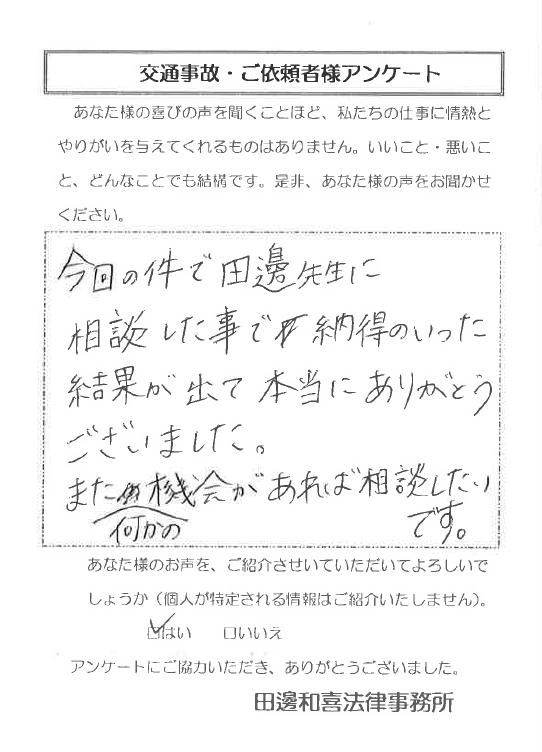 交通事故・ご依頼者様アンケート
あなた様の喜びの声を聞くことほど、私たちの仕事に情熱と
やりがいを与えてくれるものはありません。いいこと・悪いこ
と、どんなことでも結構です。是非、あなた様の声をお聞かせ
ください。
今回の件で田邊先生に
相談した事で納得のいった
結果が出て本当にありがとう
ございました。
また何かの機会があれば相談したい
です。
あなた様のお声を、ご紹介させていただいてよろしいで
しょうか(個人が特定される情報はご紹介いたしません)。
☑はい □いいえ
アンケートにご協力いただき、ありがとうございました。
田邊和喜法律事務所